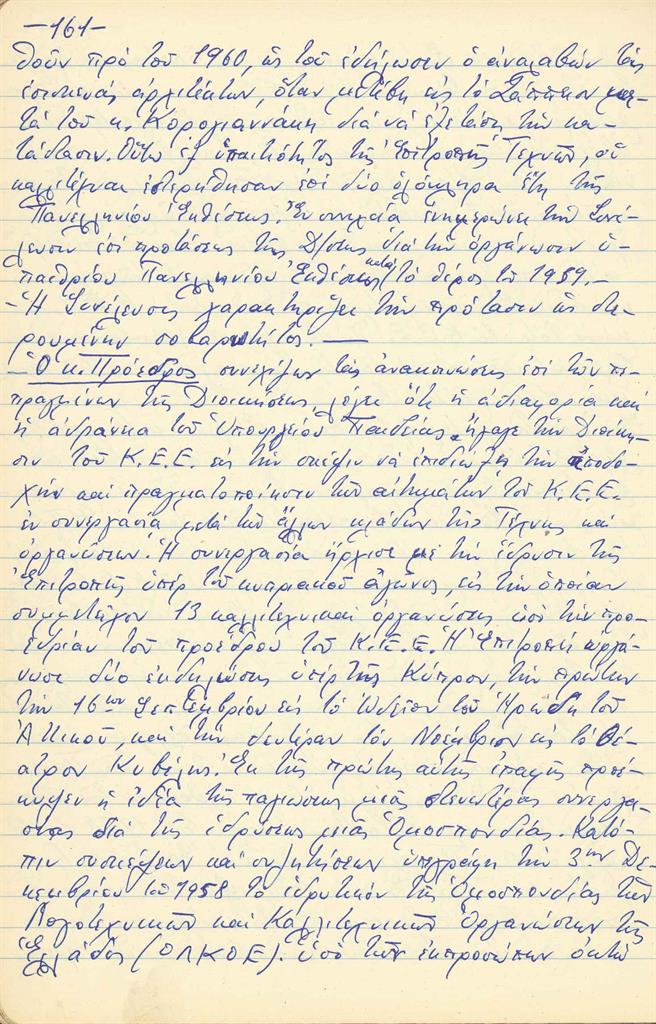 -161-
θοῦν πρό τοῦ 1960, ὡς τοῦ ἐδήλωσεν ὁ ἀναλαβών τάς
ἐπισκευάς ἀρχιτέκτων, ὅταν μετέβη εἰς τό Ζάππειον με-
τά τοῦ κ. Καρογιαννάκη διά νά ἐξετάσῃ τήν κα-
τάστασιν. Οὕτω ἐξ ὑπαιτιότητος τῆς Ἐπιτροπῆς Τεχνῶν, οἱ
καλλιτέχναι ἐστερήθησαν ἐπί δύο ὁλόκληρα ἔτη τῆς
Πανελληνίου Ἐκθέσεως. Ἐν συνεχείᾳ ἐνημερώνει τήν Συνέ-
λευσιν ἐπί προτάσεως τῆς Δ/σεως διά τήν ὀργάνωσιν ὑ-
παιθρίου Πανελληνίου Ἐκθέσεως κατά τό θέρος τοῦ 1959.-
-Ἡ Συνέλευσις χαρακτηρίζει τήν πρότασιν ὡς στε-
ρουμένην σοβαρότητος.-
-Ὁ κ. Πρόεδρος συνεχίζων τάς ἀνακοινώσεις ἐπί τῶν πε-
πραγμένων τῆς Διοικήσεως, λέγει ὅτι ἡ ἀδιαφορία καί
ἡ ἀδράνεια τοῦ Ὑπουργείου Παιδείας ἤγαγε τήν Διοίκη-
σιν τοῦ Κ.Ε.Ε. εἰς τήν σκέψιν νά ἐπιδιώξῃ τήν ἀποδο-
χήν καί πραγματοποίησιν τῶν αἰτημάτων τοῦ Κ.Ε.Ε.
ἐν συνεργασίᾳ μετά τῶν ἄλλων κλάδων τῆς Τέχνης καί
ὀργανώσεων. Ἡ συνεργασία ἤρχισε μέ τήν ἵδρυσιν τῆς
Ἐπιτροπῆς ὑπέρ τοῦ κυπριακοῦ ἀγῶνος, εἰς τήν ὁποίαν
συμμετεῖχον 13 καλλιτεχνικαί ὀργανώσεις ὑπό τήν προ-
εδρίαν τοῦ προέδρου τοῦ Κ.Ε.Ε. Ἡ Ἐπιτροπή ὠργά-
νωσε δύο ἐκδηλώσεις ὑπέρ τῆς Κύπρου, τήν πρώτην
τήν 16ην Σεπτεμβρίου εἰς τό Ὠδεῖον τοῦ Ἡρώδη τοῦ
Ἀττικοῦ, καί τήν δευτέραν τόν Νοέμβριον εἰς τό Θέ-
ατρον Κυβέλης. Ἐκ τῆς πρώτης αὐτῆς ἐπαφῆς προέ-
κυψεν ἡ ἰδέα τῆς παγιώσεως μιᾶς στενωτέρας συνεργα-
σίας διά τῆς ἱδρύσεως μιᾶς Ὁμοσπονδίας. Κατό-
πιν συσκέψεων καί συζητήσεων ὑπεγράφη τήν 3ην Δε-
κεμβρίου τοῦ 1958 τό ἱδρυτικόν τῆς Ὁμοσπονδίας τῶν
Λογοτεχνικῶν καί Καλλιτεχνικῶν Ὀργανώσεων τῆς
Ἑλλάδος (ΟΛΚΟΕ). Ὑπό τῶν ἐκπροσώπων ὀκτώ